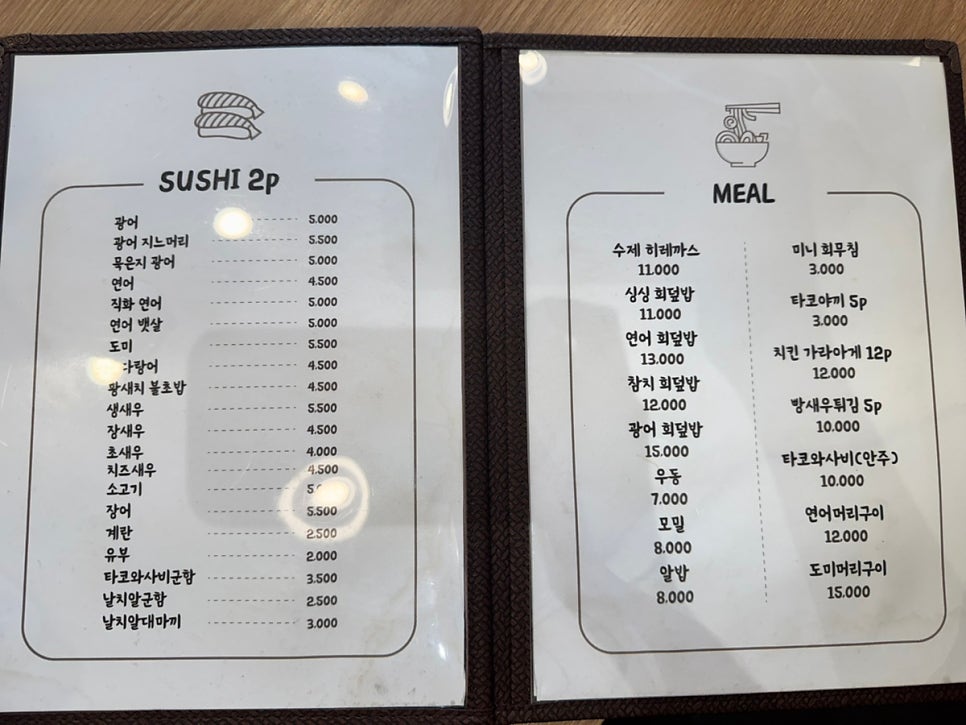 SUSHI 2p
광어 5.000
광어 지느러미 5.500
묵은지 광어 5.000
연어 4.500
직화 연어 5.000
연어 뱃살 5.000
도미 5.500
다랑어 4.500
황새치 불초밥 4.500
생새우 5.500
장새우 4.500
초새우 4.000
치즈새우 4.500
소고기
장어 5.500
계란 2.500
유부 2.000
타코와사비군함 3.500
날치알군함 2.500
날치알대마끼 3.000
MEAL
수제 히레까스
11.000
싱싱 회덮밥
11.000
연어 회덮밥
13.000
참치 회덮밥
12.000
광어 회덮밥
15.000
우동
7.000
모밀
8.000
알밥
8.000
미니 회무침
3.000
타코야끼 5p
3.000
치킨 가라아게 12p
12.000
왕새우튀김 5p
10.000
타코와사비(안주)
10.000
연어머리구이
12.000
도미머리구이
15.000